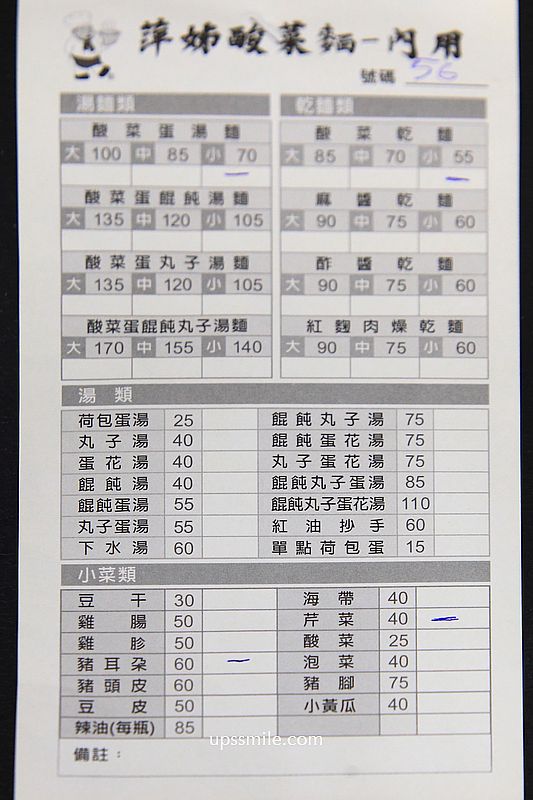 萍姊酸菜麵-內用
號碼 56
湯麵類
酸菜蛋湯麵
大 100 中 85 小 70
酸菜蛋餛飩湯麵
大 135 中 120 小 105
酸菜蛋丸子湯麵
大 135 中 120 小 105
酸菜蛋餛飩丸子湯麵
大 170 中 155 小 140
乾麵類
酸菜乾麵
大 85 中 70 小 55
麻醬乾麵
大 90 中 75 小 60
酢醬乾麵
大 90 中 75 小 60
紅麴肉燥乾麵
大 90 中 75 小 60
湯類
荷包蛋湯 25 餛飩丸子湯 75
丸子湯 40 餛飩蛋花湯 75
蛋花湯 40 丸子蛋花湯 75
餛飩湯 40 餛飩丸子蛋湯 85
餛飩蛋湯 55 餛飩丸子蛋花湯 110
丸子蛋湯 55 紅油抄手 60
下水湯 60 單點荷包蛋 15
小菜類
豆干 30 海帶 40
雞腸 50 芹菜 40
雞胗 50 酸菜 25
豬耳朵 60 泡菜 40
豬頭皮 60 豬腳 75
豆皮 50 小黃瓜 40
辣油(每瓶) 85
備註：
upssmile.com